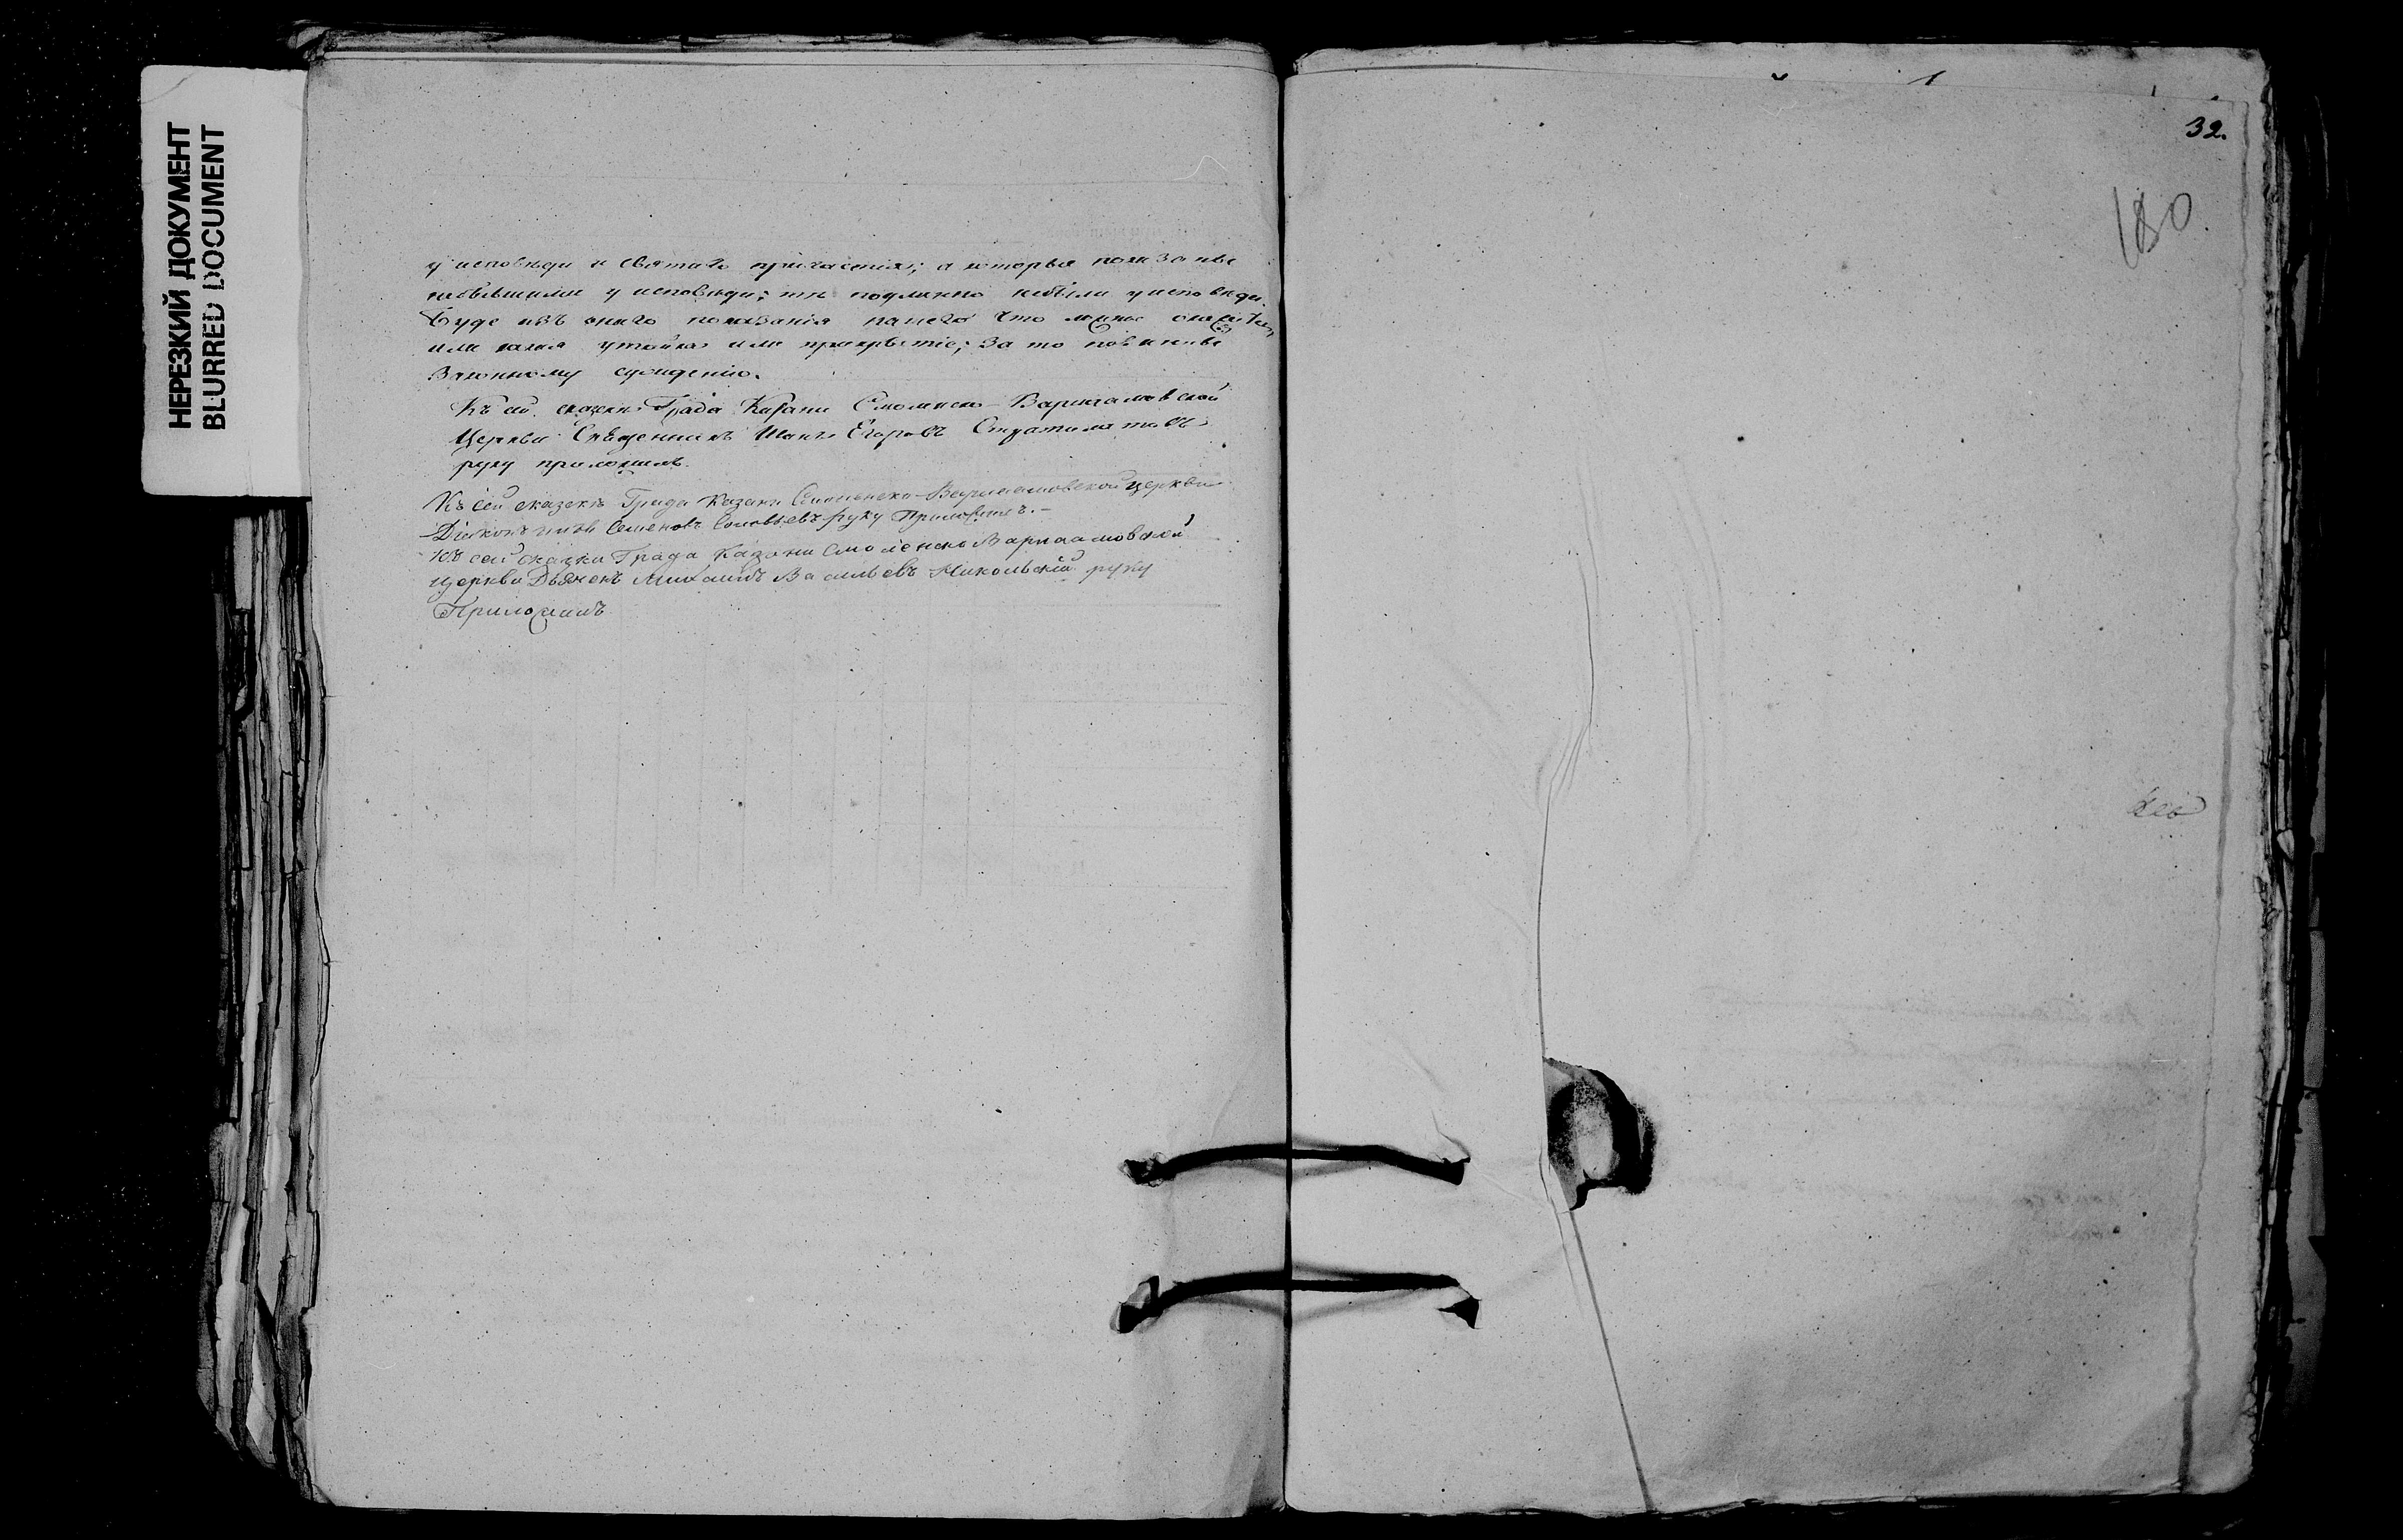 НЕРЕЗКИЙ ДОКУМЕНТ
BLURRED DOCUMENT
у исповѣди и святаго причастія; а которыя показаны
небывшими у исповѣди; тѣ подлинно небыли у исповѣди.
Буде изъ онаго показанія нашего что ложное
или какая утайка или прикрытіе; за то повинны
законному сужденію.
Къ сей сказкѣ Града Казани Смоленско-Варлаамовской
Церкви Священникъ Егоровъ Стратилатовъ
руку приложилъ.
Къ сей сказкѣ Града Казани Смоленско-Варлаамовской церкви
Діаконъ Семеновъ Соловьевъ руку приложилъ.-
Къ сей сказки Града Казани Смоленско Варлаамовской
церкви Дьячекъ Михаилъ Васильевъ Никольскій руку
Приложилъ
32.
180.